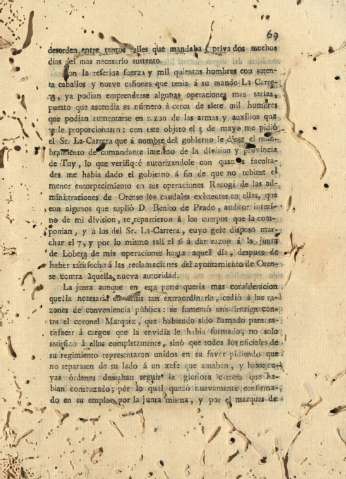 69
desorden entre tantos miles que mandaba, privados muchos
dias del mas necesario sustento.
Con la referida fuerza y mil quientas hombres con setenta
caballos y nueve cañones que tenia á su mando La Carrera,
ya podian emprenderse algunas operaciones mas serias,
puesto que ascendia su número á cerca de siete mil hombres
que podian aumentarse en razon de las armas y auxîlios que
se le proporcionaran: con este objeto el 5 de mayo me pidió
el Sr. La-Carrera que á nombre del gobierno le diese el nombramiento
de comandante interino de la division y provincia
de Tuy, lo que verifiqué autorizandole con quantas facultades
me habia dado el gobierno á fin de que no tubiese el
menor entorpecimiento en sus operaciones Recogí de las administraciones
de Orense los caudales exîstentes en ellas, que
con algunos que suplió D. Benito de Prado, auditor interino
de mi division, se repartieron á los cuerpos que la componian,
y á los del Sr. La-Carrera, cuyo gefe dispuso marchar
el 7, y por lo mismo salí el 6 á dar razon á la junta
de Lobera de mis operaciones hasta aquel dia, despues de
haber satisfecho á las reclamaciones del ayuntamiento de Orense
contra aquella nueva autoridad.
La junta aunque en esta parte queria mas consideracion
que la necesaria en tiempos tan extraordinarios, cedió á las razones
de conveniencia pública: se fomentó una intriga contra
el coronel Marquez, que habiendo sido llamado para satisfacer
á cargos que la envidia le habia formado, no solo
satisfizo á ellos completamente, sino que todos los oficiales de
su regimiento representaron unidos en su favor pidiendo que
no separasen de su lado á un xefe que amaban, y baxo cuyas
órdenes deseaban seguir la gloriosa carrera que habian
comenzado; por lo qual quedó nuevamente confirmado
en su empleo por la junta misma, y por el marques de